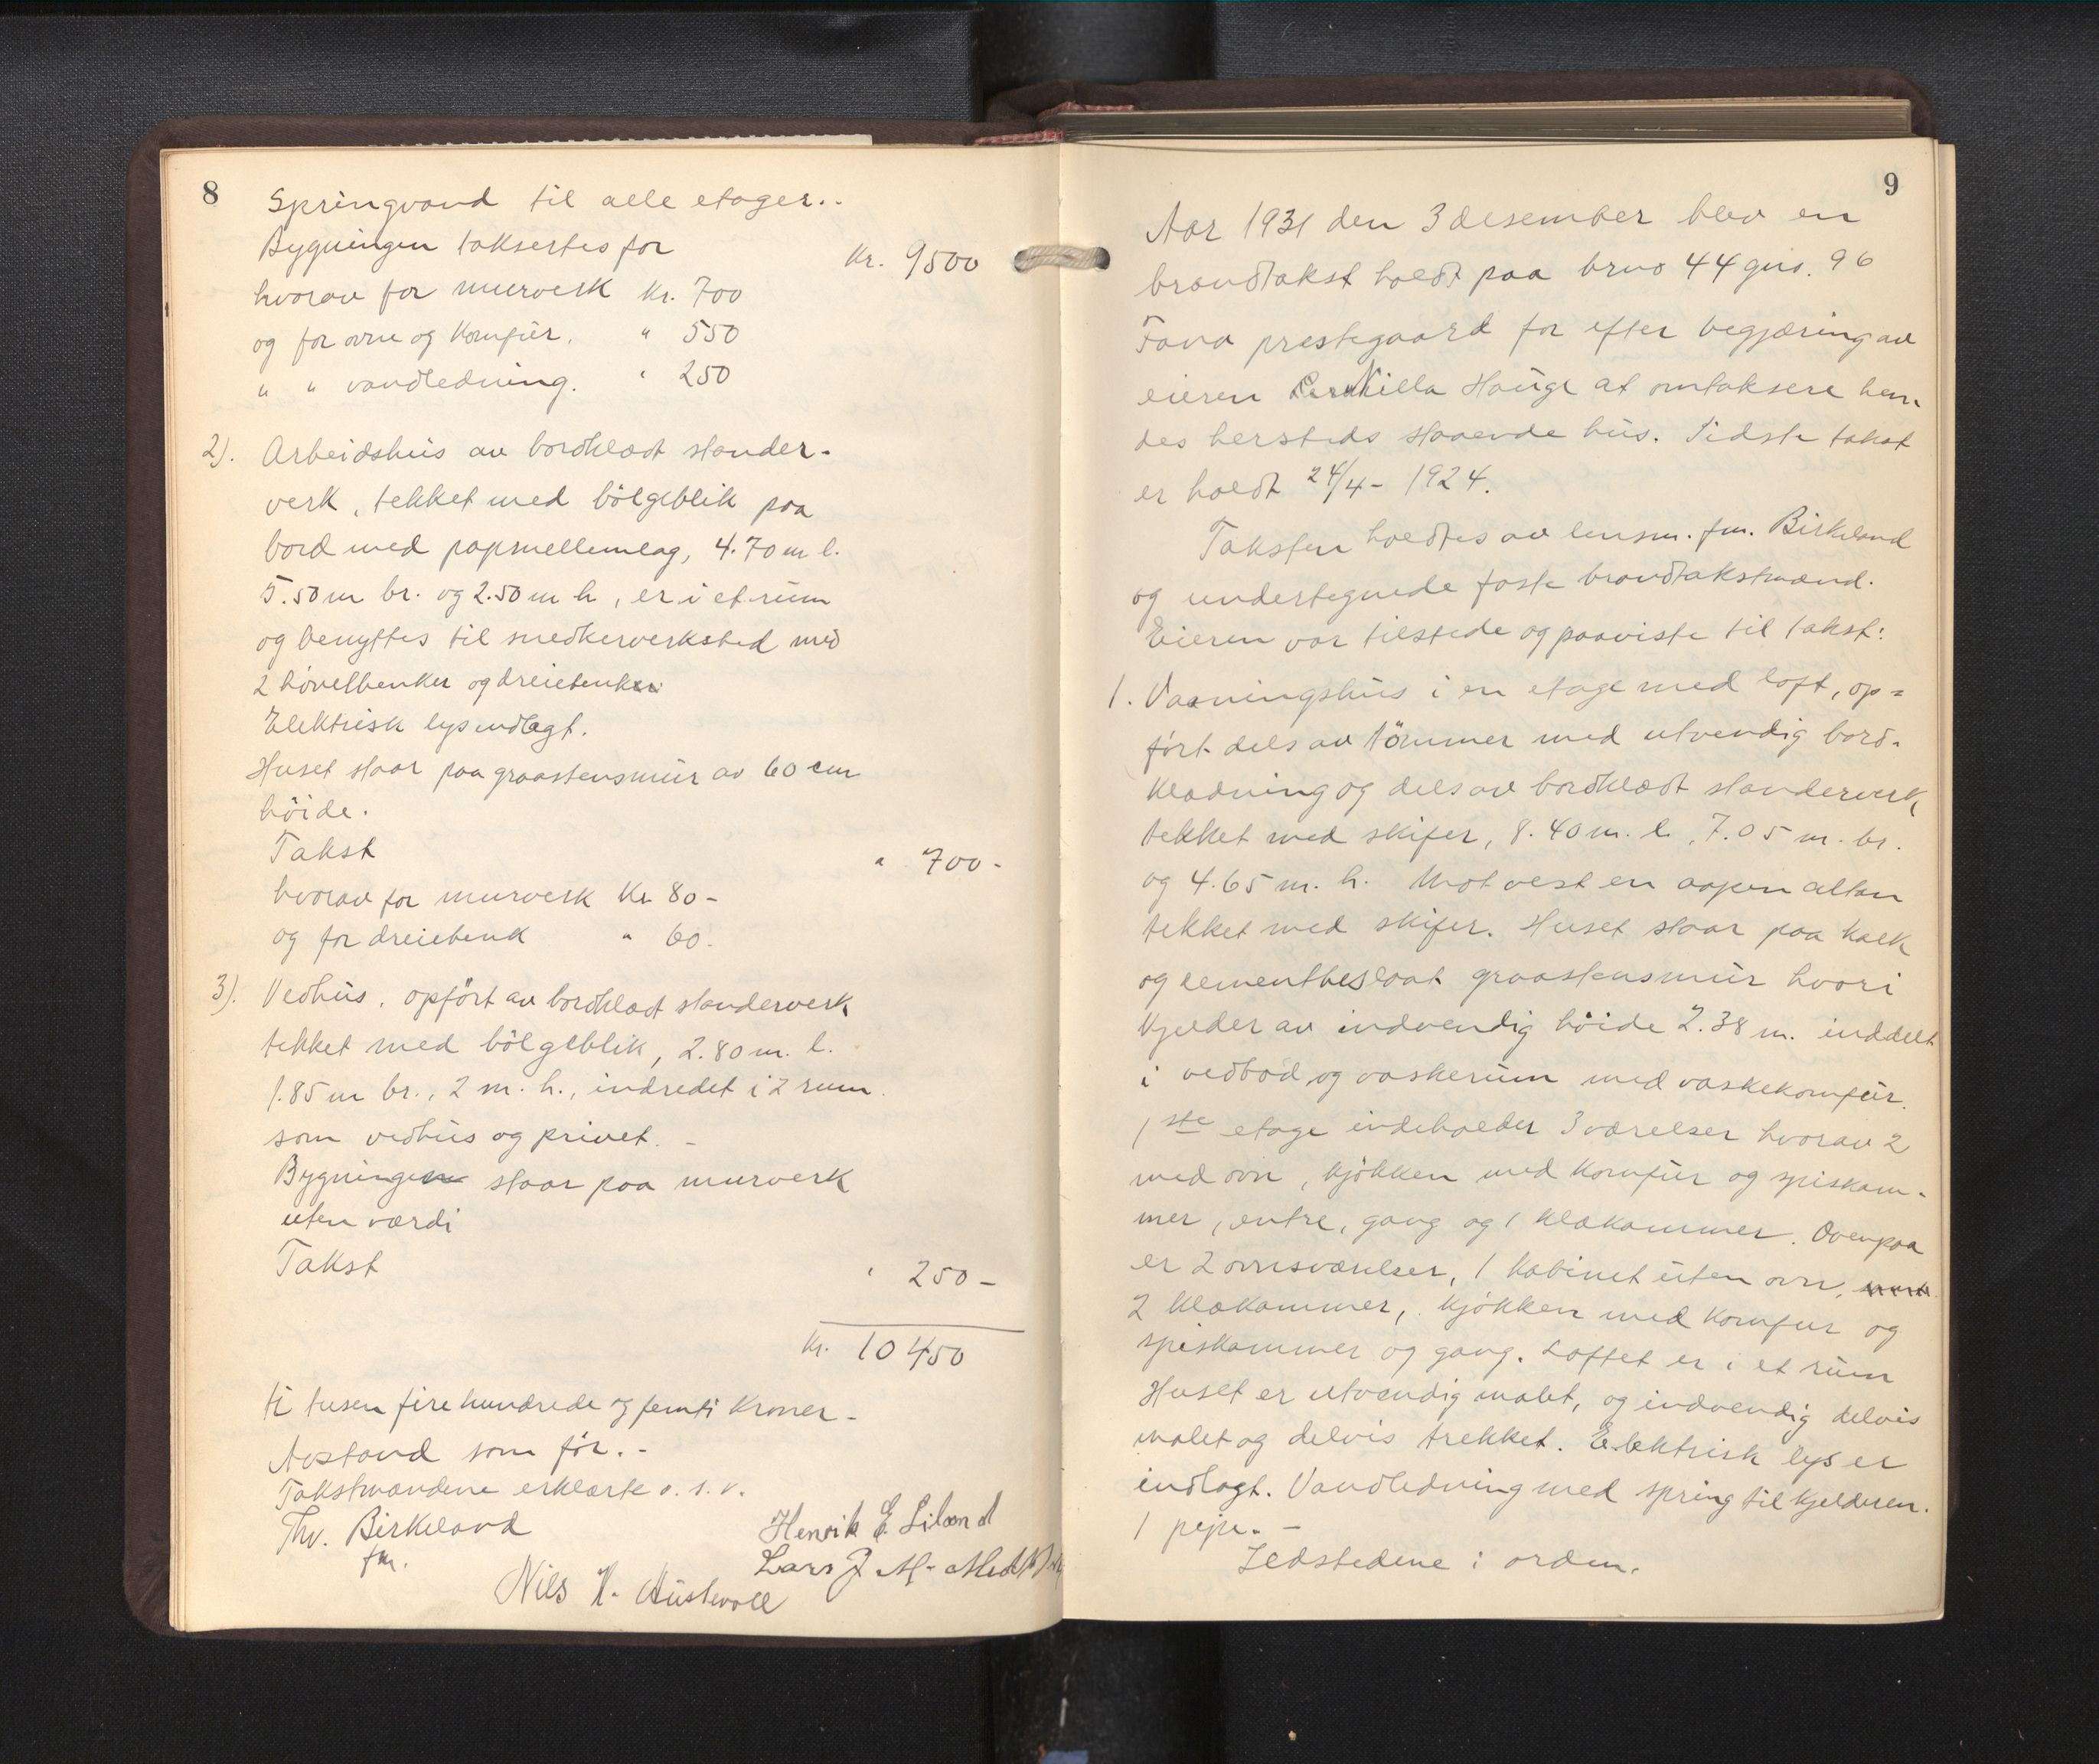 8
Springvand til alle etager..
Bygningen taksertes for
Kr. 9500
hvorav for murverk Kr. 700
og for ovne og Komfür. " 550
" " vandledning. " 250
2). Arbeidshüs av bordklædt stender-
verk, tekket med bölgeblik paa
bord med papmellemlag, 4.70 m l.
5.50 m br. og 2.50 m h, er i et rüm
og benyttes til snedkerverksted med
2 hövelbenker og dreiebenker
Elektrisk lys indlagt.
Huset staar paa graastensmür av 60 cm
höide.
Takst " 700-
hvorav for murverk Kr 80-
og for dreiebenk " 60.
3). Vedhüs, opfört av bordklædt stenderverk
tekket med bölgeblik, 2.80 m. l.
1.85 m br., 2 m. h., indredet i 2 rum.
som vedhüs og privet. -
Bygningen staar paa murverk
uten værdi
Takst " 250-
Kr. 10450
ti tusen fire hundrede og femti Kroner-
Avstand som för.-
Takstmændene erklærte o. s. v.
Thv. Birkeland
fm.
Henrik E. Liland
Lars J. M-
Nils H. Austevoll
9
Aar 1931 den 3 desember blev en
brandtakst holdt paa brno 44 gno. 96
Fana prestegaard for efter begjæring av
eieren Pernilla Hauge at omtaksere hen-
des hersteds staaende hüs. Sidste takst
er holdt 24/4- 1924.
Taksten holdtes av lensm. fm. Birkeland
og undertegnede faste brandtakstmænd.
Eieren var tilstede og paaviste til takst:
1. Vaaningshüs i en etage med loft, op=
fört dels av tömmer med utvendig bord-
klædning og dels av bordklædt stenderverk,
tekket med skifer, 8.40 m. l., 7.05 m. br.
og 4.65 m. h. Mot vest en aapen altan
tekket med skifer. Huset staar paa kalk
og cementbeslaat graastensmür hvori
Kjelder av indvendig höide 2.38 m. inddelt
i vedbod og vaskerüm med vaskekomfür.
1ste etage indeholder 3 værelser hvorav 2
med ovn, kjökken med komfür og spiskam-
mer, entre, gang og 1 klækammer. Ovenpaa
er 2 ovnsværelser, 1 kabinet uten ovn,
2 klækammer, kjökken med komfur og
spiskammer og gang. Loftet er i et rüm
Huset er utvendig malet, og indvendig delvis
malet og delvis trekket. Elektrisk lys er
indlagt. Vandledning med spring til kjelderen.
1 pipe. -
Ildstedene i orden.